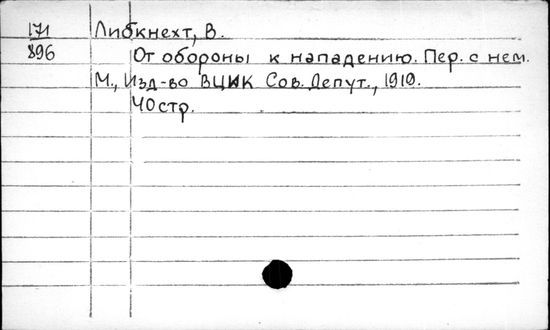 171 Либкнехт, В.
896 От обороны к нападению. Пер. с нем.
М., Изд-во ВЦИК Сов. Депут., 1919.
40 стр.